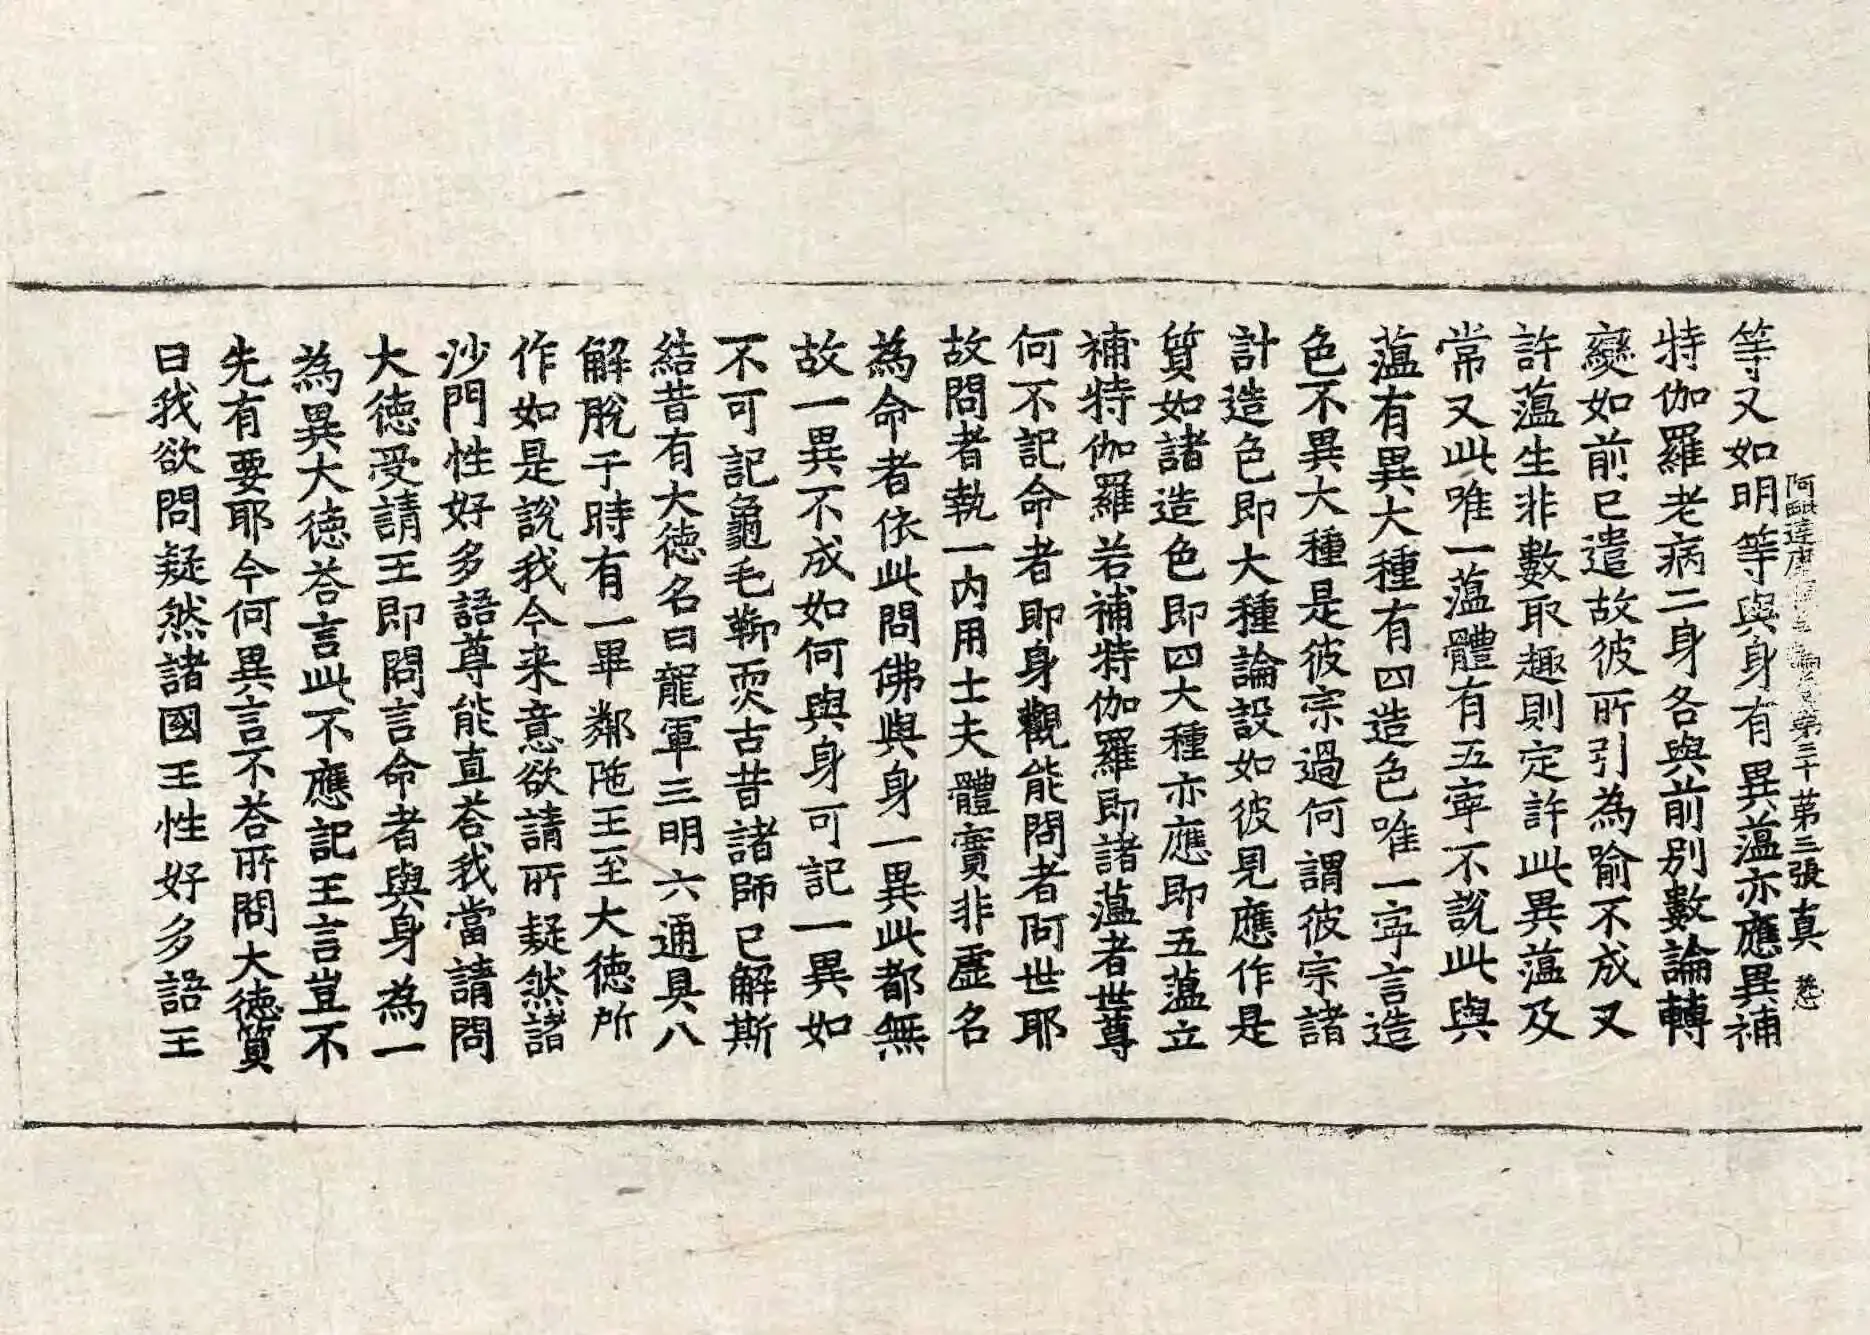 阿毗達磨 第三十 第三張 真
等又如明等與身有異薀亦應異補
特伽羅老病二身各與前別數論轉
變如前已遣故彼所引為喻不成又
許薀生非數取趣則定許此異薀及
常又此唯一薀體有五寧不說此與
薀有異大種有四造色唯一寧言造
色不異大種是彼宗過何謂彼宗諸
計造色即大種論設如彼見應作是
質如諸造色即四大種亦應即五薀立
補特伽羅若補特伽羅即諸薀者世尊
何不記命者即身觀能問者阿世耶
故問者執一內用士夫體實非虛名
為命者依此問佛與身一異此都無
故一異不成如何與身可記一異如
不可記龜毛䩕耎古昔諸師已解斯
結昔有大德名曰龍軍三明六通具八
解脫于時有一畢鄰陁王至大德所
作如是說我今来意欲請所疑然諸
沙門性好多語尊能直荅我當請問
大德受請王即問言命者與身為一
為異大德荅言此不應記王言豈不
先有要耶今何異言不荅所問大德質
曰我欲問疑然諸國王性好多語王